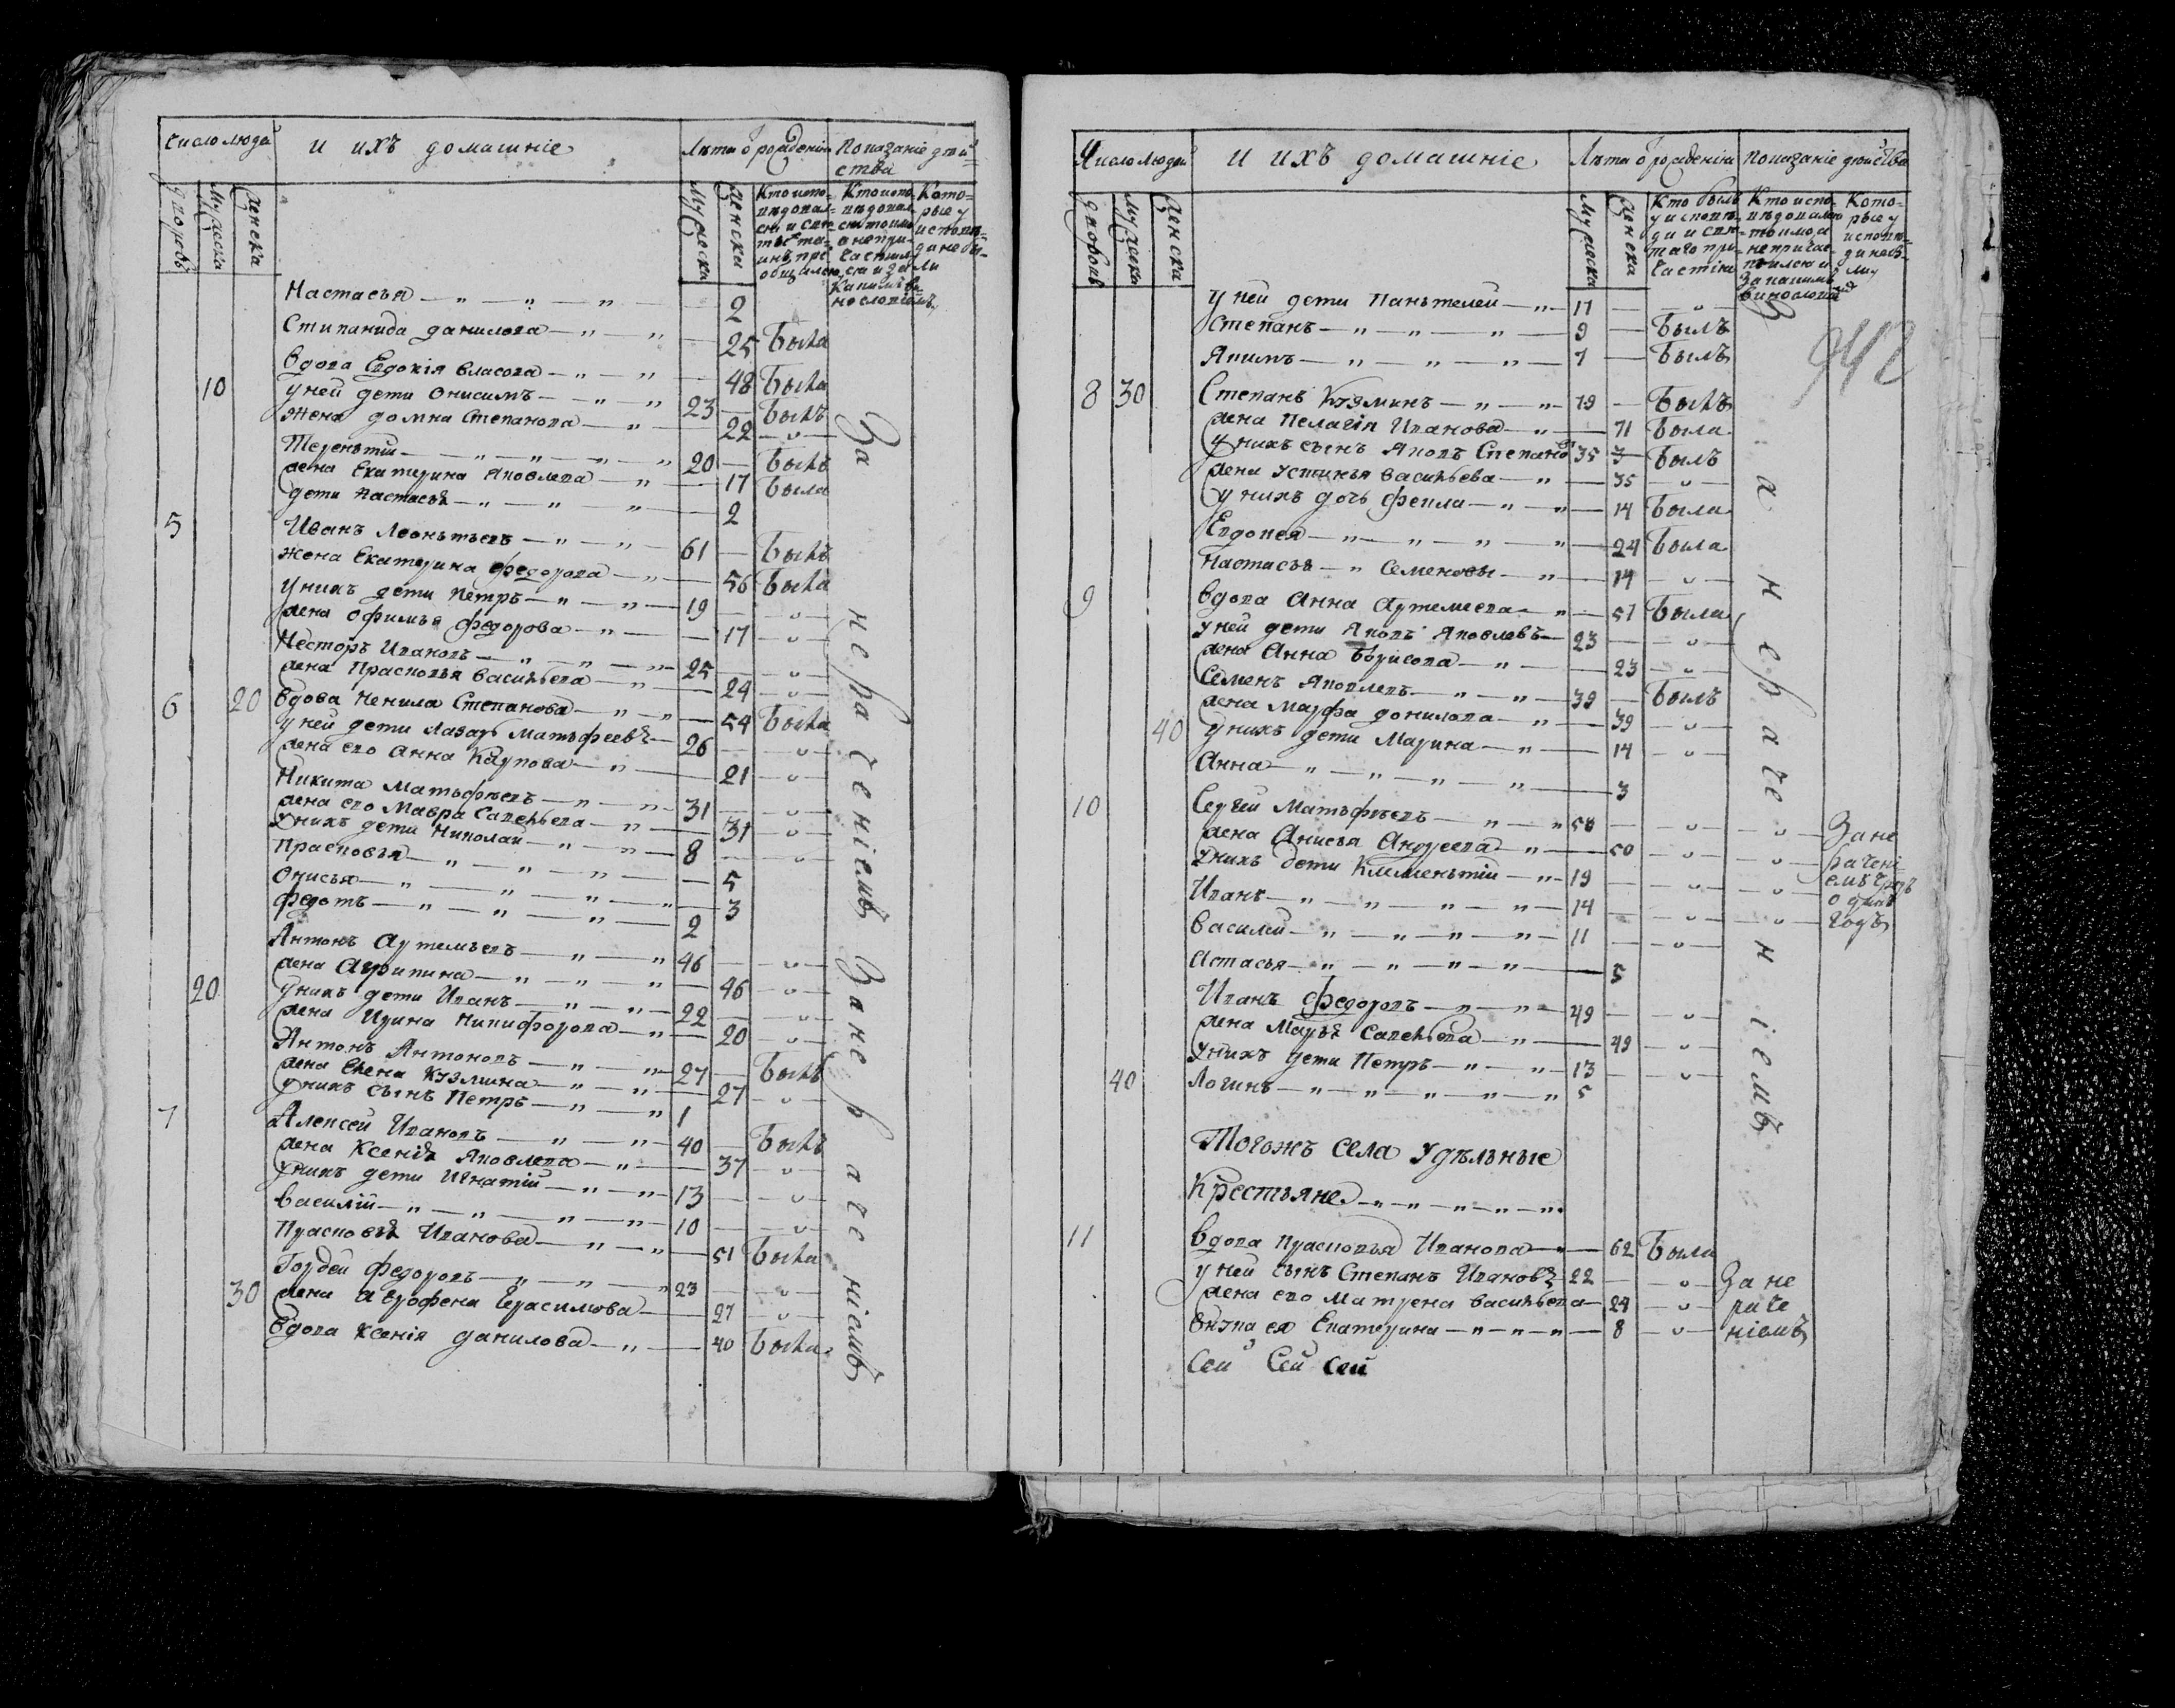 Число людей и ихъ домашніе Лѣта ѿ рожденія Показаніе дѣйства
дворовъ мужеска женска мужеска женска
Настасья — " — " — " 2
Стипанида данилова — " — " 25 была
вдова Евдокія власова — " — " 48 была
10 у ней дети Онисимъ — " — " 23 — былъ
жена домна Степанова — " — 22 — " —
Терентій — " — " — " — " 20 — былъ
жена Екатерина Яковлева — " — 17 была
дети настасья — " — " — " — 2
5 Иванъ Леонтьевъ — " — " — 61 — былъ
жена Екатерина федорова — " — 56 была
у нихъ дети петръ — " — " — 19 — " —
жена офимья федорова — " — 17 — " —
Несторъ Ивановъ — " — " — " 25 — " —
жена Прасковья васильева — " — 24 — " —
6 20 вдова Ненила Степанова — " — " — 54 была
у ней дети Лазарь Матвфеевъ — 26 — " —
жена его анна Карпова — " — 21 — " —
Никита Матвфѣевъ — " — " — 31 — " —
жена его Мавра Савельева — " — 31 — " —
у нихъ дети Николай — " — " — 8 — " —
Прасковья — " — " — " — 5
Онисья — " — " — " — " — 3
федотъ — " — " — " — 2
Антонъ Артемьевъ — " — " 46 — " —
жена Агрипина — " — " — " — 46 — " —
20 у нихъ дети Иванъ — " — " — 22 — " —
жена Ирина Никифорова — " — 20 — " —
Антонъ Антоновъ — " — " 27 — былъ
жена Елена Кузмина — " — " — 27 — " —
у нихъ сынъ Петръ — " — " 1
7 Алексей Ивановъ — " — " — 40 — былъ
жена Ксенія Яковлева — " — 37 — " —
у нихъ дети Игнатій — " — " — 13 — " —
василій — " — " — " — " — 10 — " —
Прасковья Иванова — " — " — 51 была
Гордей федоровъ — " — " — " 23 — " —
30 жена агрофена Герасимова — 27 — " —
вдова Ксенія данилова — " — 40 была
За нераченіемъ Занераченіемъ
Число людей и ихъ домашніе Лѣта ѿ рожденія показаніе дѣйства
дворовъ мужеска женска мужеска женска
942
у ней дети Пантелей — " — 11 — " —
Степанъ — " — " — " — 9 — былъ
Якимъ — " — " — " — 7 — былъ
8 30 Степанъ Кузминъ — " — " — 79 — былъ
жена Пелагія Иванова — " — 71 была
у нихъ сынъ Яковъ Степановъ 35 былъ
жена устинья васильева — " — 35 — " —
у нихъ дочь фекла — " — " — 14 была
Евдокея — " — " — " — " — 24 была
Настасья — " Семеновы — " — 14 — " —
9 вдова Анна Артемьева — " — 51 была
у ней дети Яковъ Яковлевъ — 23 — " —
жена Анна Борисова — " — 23 — " —
Семенъ Яковлевъ — " — " — 39 — былъ
жена марфа данилова — " — 39 — " —
40 у нихъ дети Марина — " — 14 — " —
Анна — " — " — " — " — 3
10 Сергей Матвфѣевъ — " — " 50 — " — " — Зане
жена Анисья Андреева — " — 50 — " — " — рачені
у нихъ дети Климентій — " — 19 — " — " — емъ чрезъ
одинъ
Иванъ — " — " — " — " — 14 — " — " — годъ
василей — " — " — " — " — 11 — " —
Астасья — " — " — " — " — 5
Иванъ федоровъ — " — " — 49 — " —
жена Марья Савельева — " — 49 — " —
у нихъ дети Петръ — " — " — 13 — " —
40 Логинъ — " — " — " — " — " 5
Занераченіемъ
Тогожъ села удѣльные
Крестьяне — " — " — " — " — "
11 вдова прасковья Иванова — " — 62 была
у ней сынъ Степанъ Ивановъ 22 — " — За не
жена его матрена васильева — 24 — " — раче
внука ея Екатерина — " — " — " — 8 — " — ніемъ
Сей Сей Сей